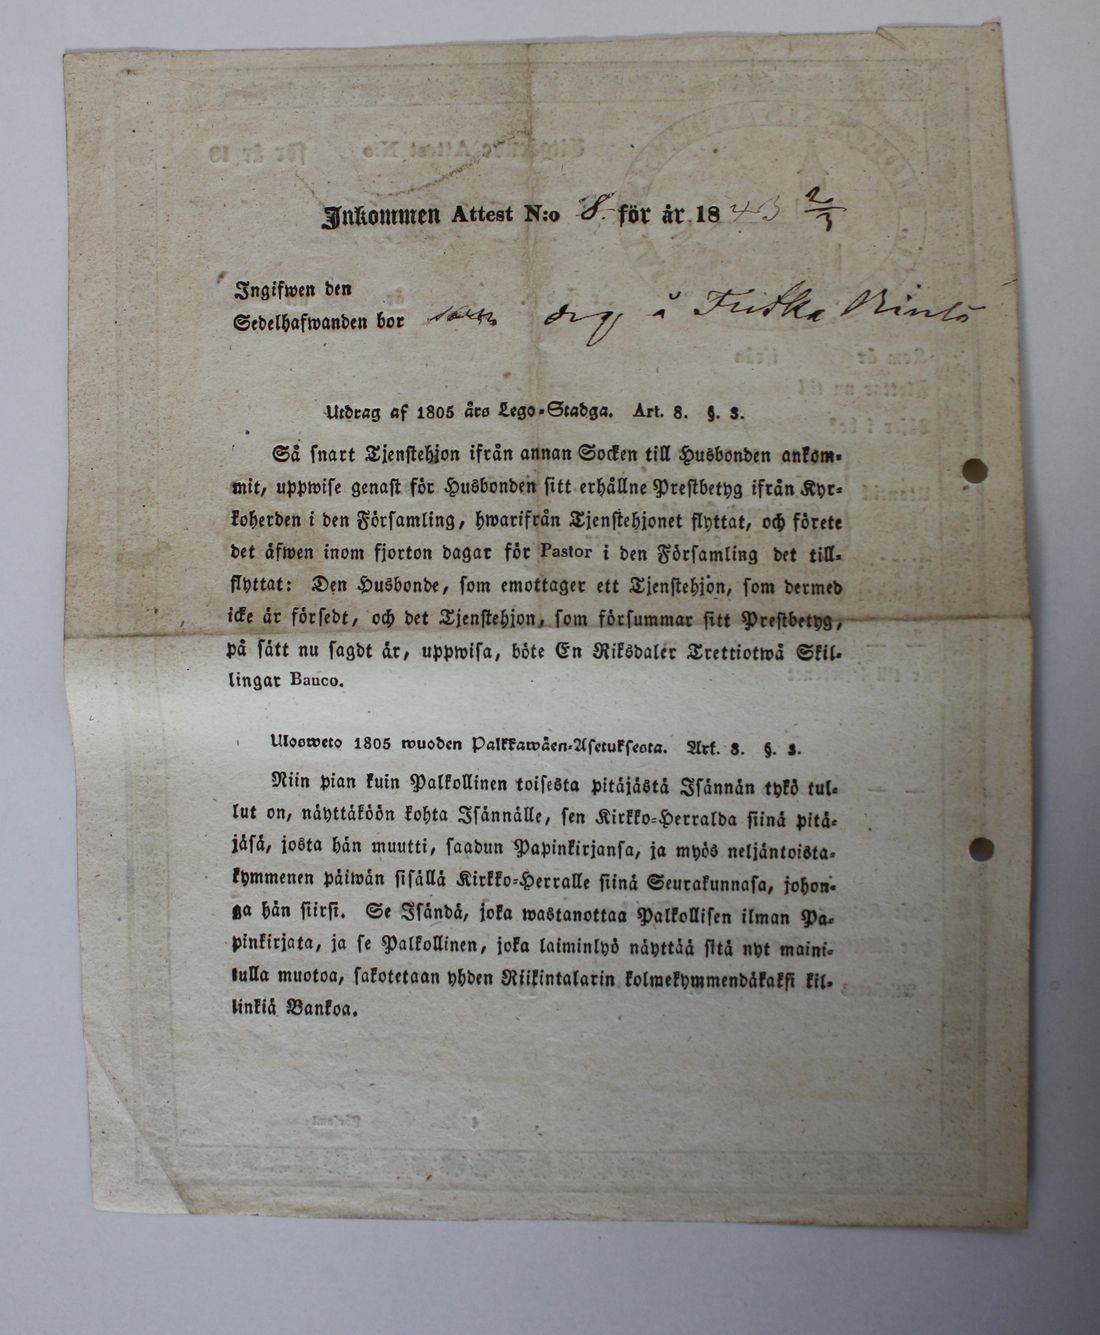 Inkommen Attest N:o 8. för år 1843 2/3
Ingifwen den
Sedelhafwanden bor som drg å
Utdrag af 1805 års Lego-Stadga. Art. 8. §. 3.
Så snart Tjenstehjon ifrån annan Socken till Husbonden ankom-
mit, uppwise genast för Husbonden sitt erhållne Prestbetyg ifrån Kyr-
koherden i den Församling, hwarifrån Tjenstehjonet flyttat, och förete
det äfwen inom fjorton dagar för Pastor i den Församling det till-
flyttat: Den Husbonde, som emottager ett Tjenstehjon, som dermed
icke är försedt, och det Tjenstehjon, som försummar sitt Prestbetyg,
på sätt nu sagdt är, uppwisa, böte En Riksdaler Trettiotwå Skil-
lingar Banco.
Ulosweto 1805 wuoden Palkkawäen-Asetuksesta. Art. 8. §. 3.
Niin pian kuin Palkollinen toisesta pitäjästä Isännän tykö tul-
lut on, näyttäköön kohta Isännälle, sen Kirkko-Herralda siinä pitä-
jäsä, josta hän muutti, saadun Papinkirjansa, ja myös neljäntoista-
kymmenen päiwän sisällä Kirkko-Herralle siinä Seurakunnasa, johon-
ga hän siirsi. Se Isändä, joka wastanottaa Palkollisen ilman Pa-
pinkirjata, ja se Palkollinen, joka laiminlyö näyttää sitä nyt maini-
tulla muotoa, sakotetaan yhden Riikintalarin kolmekymmendäkaksi kil-
linkiä Bankoa.